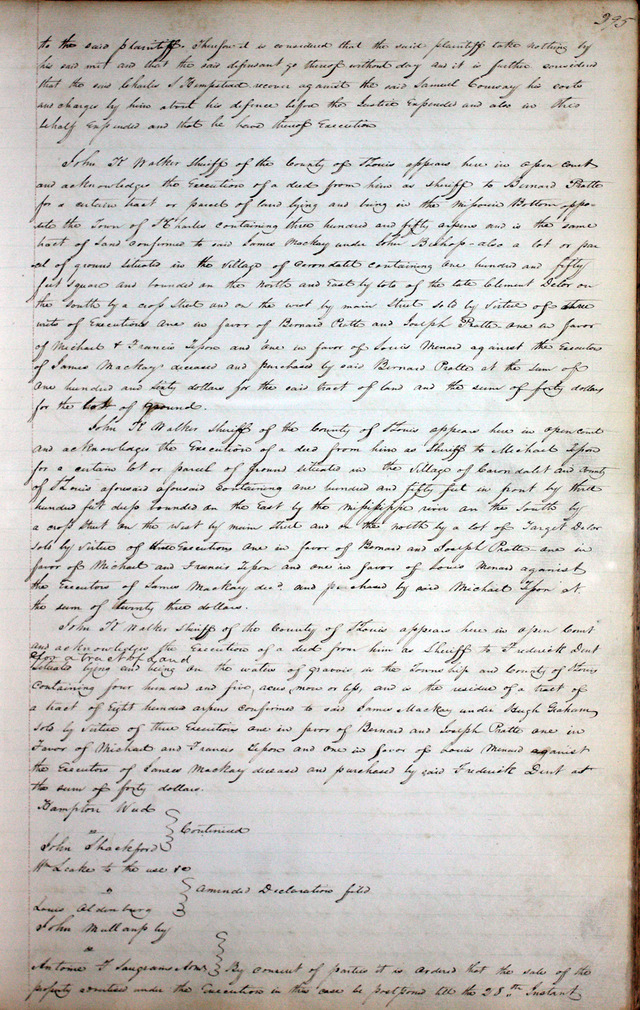 295
to the said plaintiff. Therefore it is considered that the said plaintiff take nothing by
his said writ and that the said defendant go thereof without day and it is further considered
that the said Charles S Hempstead recover against the said Samuel Conway his costs
and charges by him about his defence before the Justice Expended and also in this
behalf Expended and that he have thereof Execution
John K Walker Sheriff of the County of St Louis appears here in open court
and acknowledges the Execution of a deed from him as sheriff to Bernard Pratte
for a certain tract or parcel of land lying and being in the Missouri Bottom oppo-
site the Town of St Charles containing three hundred and fifty arpens and is the same
tract of Land confirmed to said James Mackay under John Bishop - also a lot or par
cel of ground situated in the Village of Carondelett containing one hundred and fifty
feet square and bounded on the North and East by lots of the late Clement Delor on
the South by a cross Street and on the west by main Street sold by Virtue of three
writs of Executions one in favor of Bernard Pratte and Joseph Pratte one in favor
of Michael & Francis Tepon and one in favor of Louis Menard against the Executors
of James Mackay deceased and purchased by said Bernard Pratte at the sum of
one hundred and sixty dollars for the said tract of land and the sum of forty dollars
for the lot of ground.
John K Walker Sheriff of the County of St Louis appears here in open court
and acknowledges the Execution of a deed from him as Sheriff to Michael Tepon
for a certain lot or parcel of ground situated in the Village of Carondalet and County
of St Louis aforesaid aforesaid containing one hundred and fifty feet in front by three
hundred feet deep bounded on the East by the Missisippi river on the South by
a cross Street on the West by main street and on the north by a lot of Target Delor
sold by Virtue of three Executions one in favor of Bernard and Joseph Pratte one in
favor of Michael and Francis Tepon and one in favor of Louis Menard against
the Executors of James Mackay decd. and purchased by said Michael Tepon at
the sum of twenty three dollars.
John K Walker Sheriff of the County of St Louis appears here in open Court
and acknowledges the Execution of a deed from him as Sheriff to Frederick Dent
for a tract of Land
situated lying and being on the waters of gravois in the Township and County of St Louis
containing four hundred and five acres more or less, and is the residue of a tract of
a tract of Eight hundred arpens confirmed to said James Mackay under Hugh Graham
sold by Virtue of three Executions one in favor of Bernard and Joseph Pratte one in
Favor of Michael and Francis Tepon and one in favor of Louis Menard against
the Executors of James Mackay deceased and purchased by said Frederick Dent at
the sum of forty dollars.
Hampton Wud
vs } Continued
John Shackford
Wm Leake to the use &c
vs } Amended Declaration filed
Louis Aldenburg
John Mullanphy
vs
Antoine F Saugrains Admr } By consent of parties it is ordered that the sale of the
property advertised under the Execution in this case be postponed till the 28th Instant